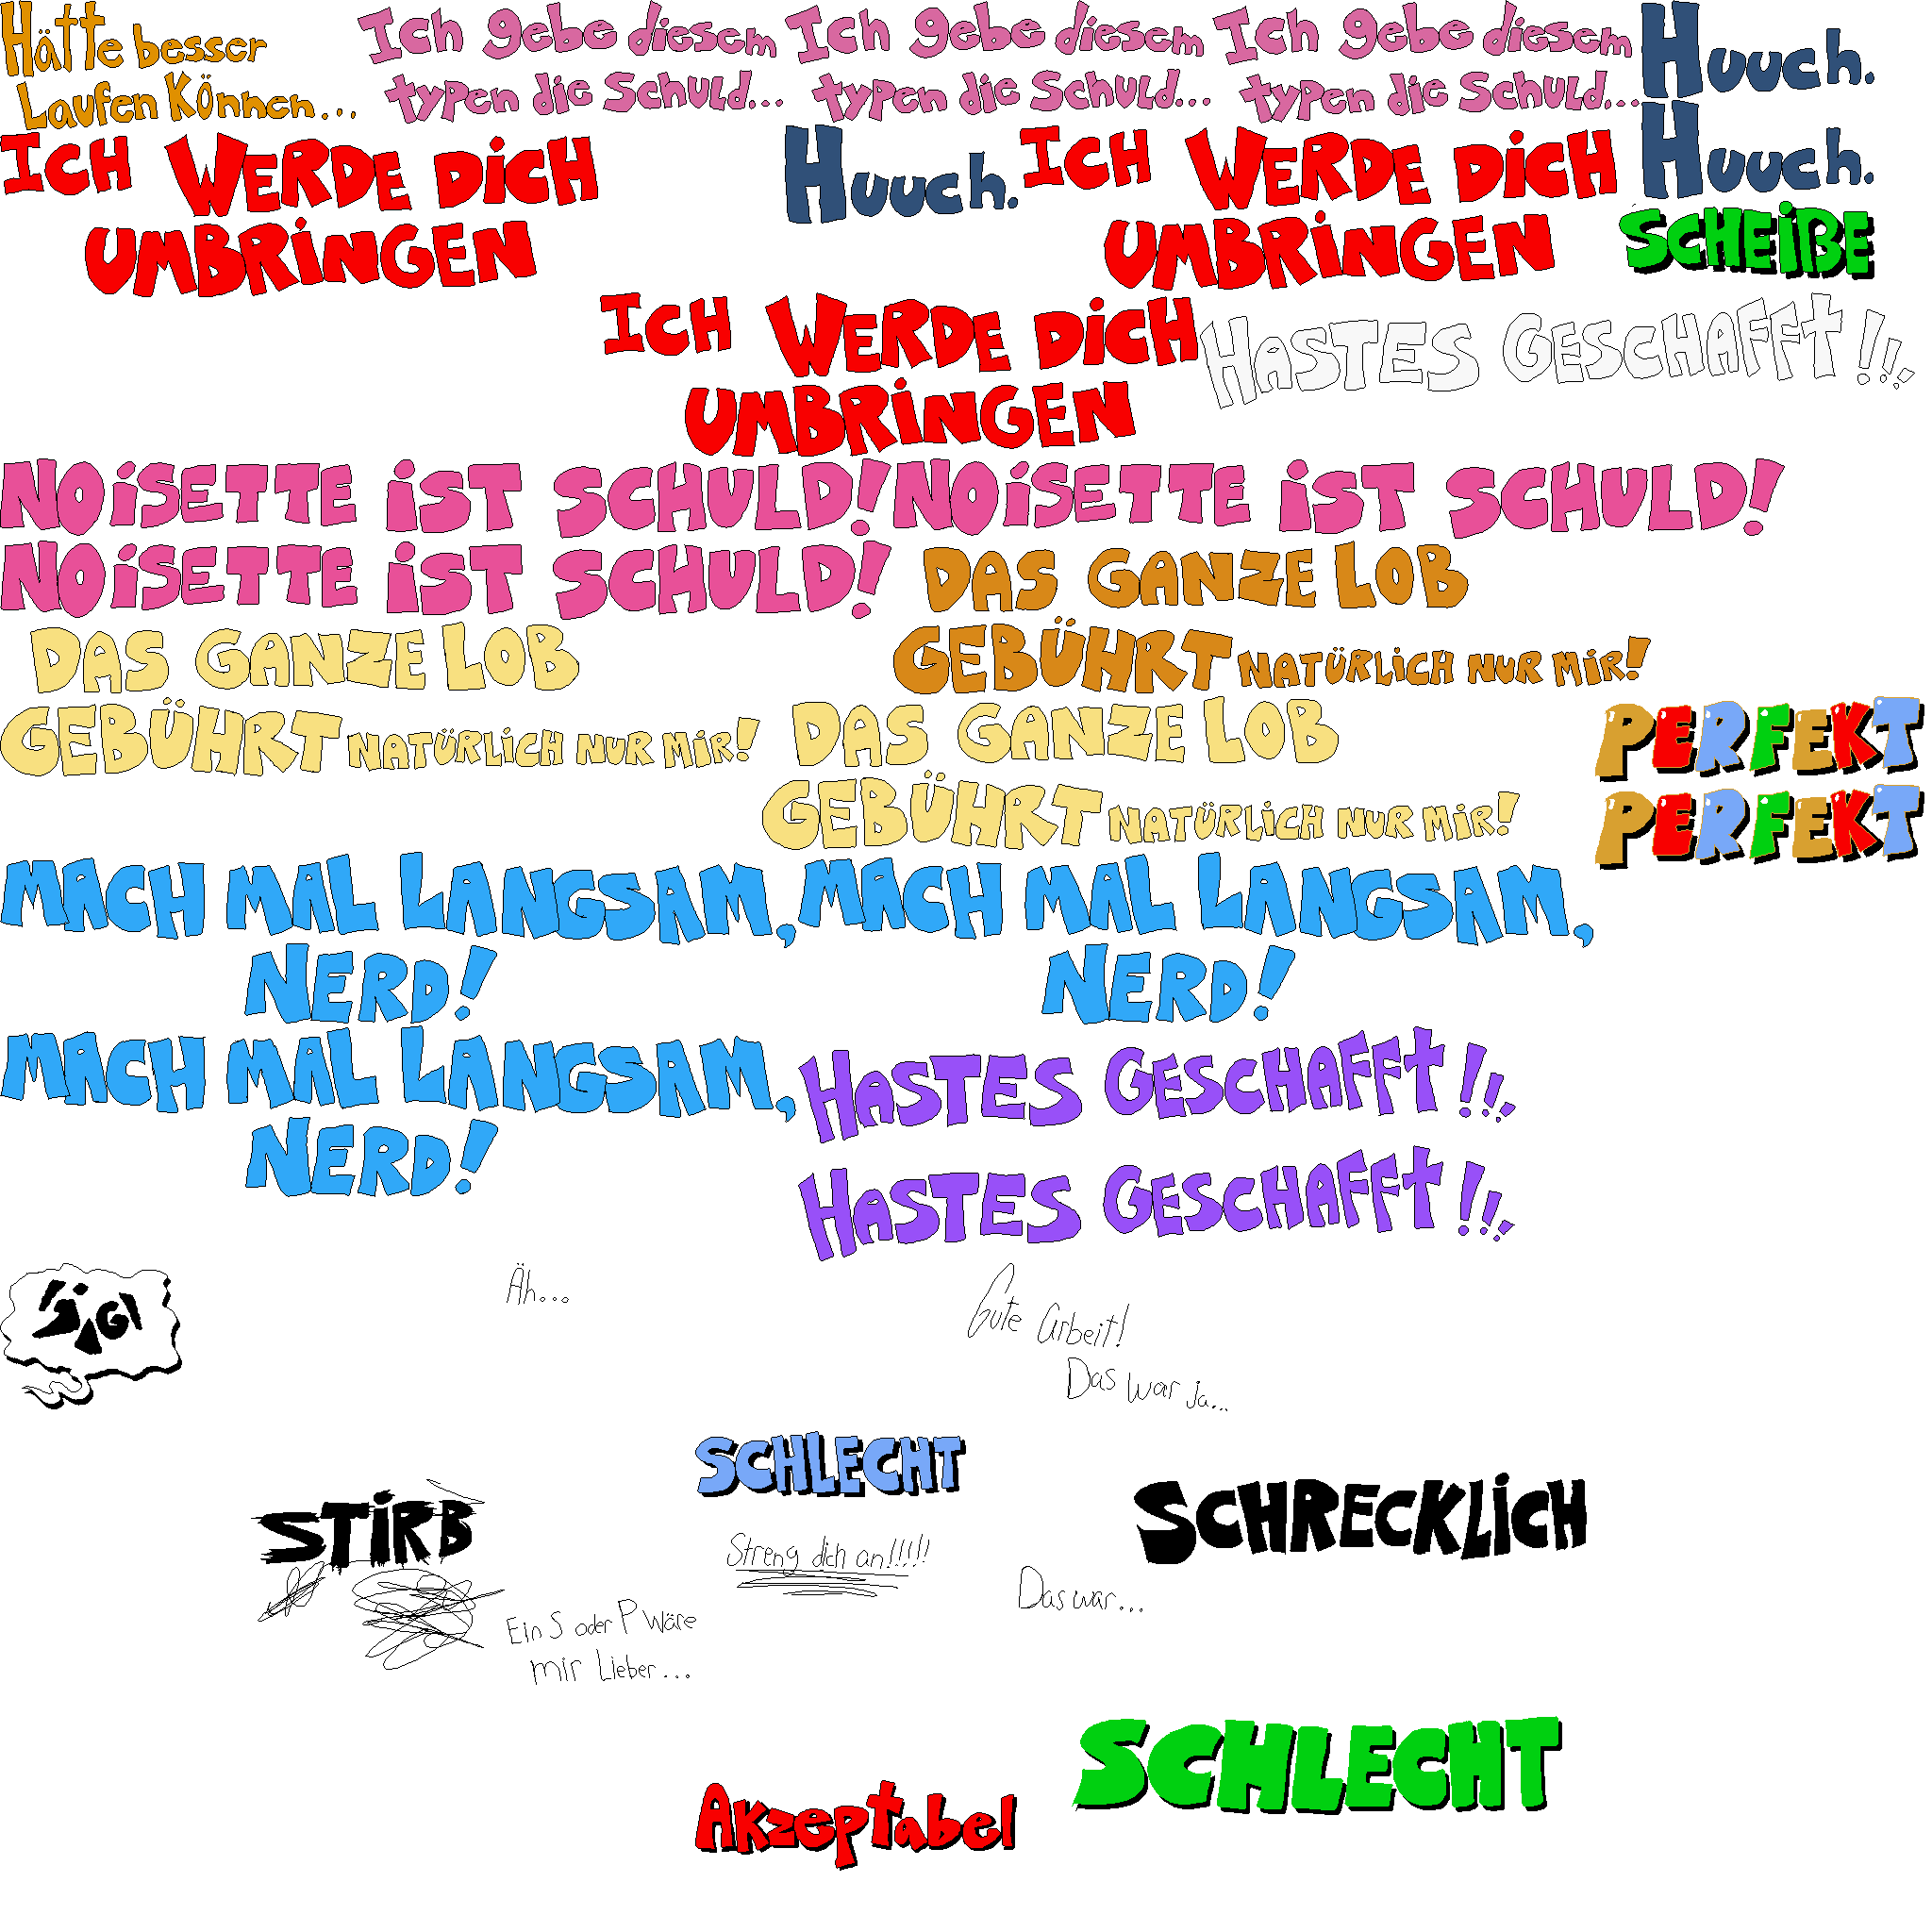 Hätte besser
Laufen Können...
Ich gebe diesem
typen die Schuld...
Ich gebe diesem
typen die Schuld...
Ich gebe diesem
typen die Schuld...
Huuch.
Huuch.
ICH WERDE DiCH
UMBRiNGEN
Huuch.
ICH WERDE DiCH
UMBRiNGEN
SCHEißE
ICH WERDE DiCH
UMBRiNGEN
HASTES GESCHAFFt!!!,
NOiSETTE iST SCHULD!
NOiSETTE iST SCHULD!
NOiSETTE iST SCHULD!
DAS GANZE LOB
GEBÜHRT NATÜRLiCH NUR MiR!
DAS GANZE LOB
GEBÜHRT NATÜRLiCH NUR MiR!
DAS GANZE LOB
GEBÜHRT NATÜRLiCH NUR MiR!
PERFEKT
PERFEKT
MACH MAL LANGSAM,
NERD!
MACH MAL LANGSAM,
NERD!
MACH MAL LANGSAM,
NERD!
HASTES GESCHAFFt!!!,
HASTES GESCHAFFt!!!,
Äh...
Gute Arbeit!
Das war ja...
SCHLECHT
STiRB
SCHRECKLiCH
Streng dich an!!!!!
Das war...
Ein S oder P Wäre
mir Lieber...
SCHLECHT
Akzeptabel